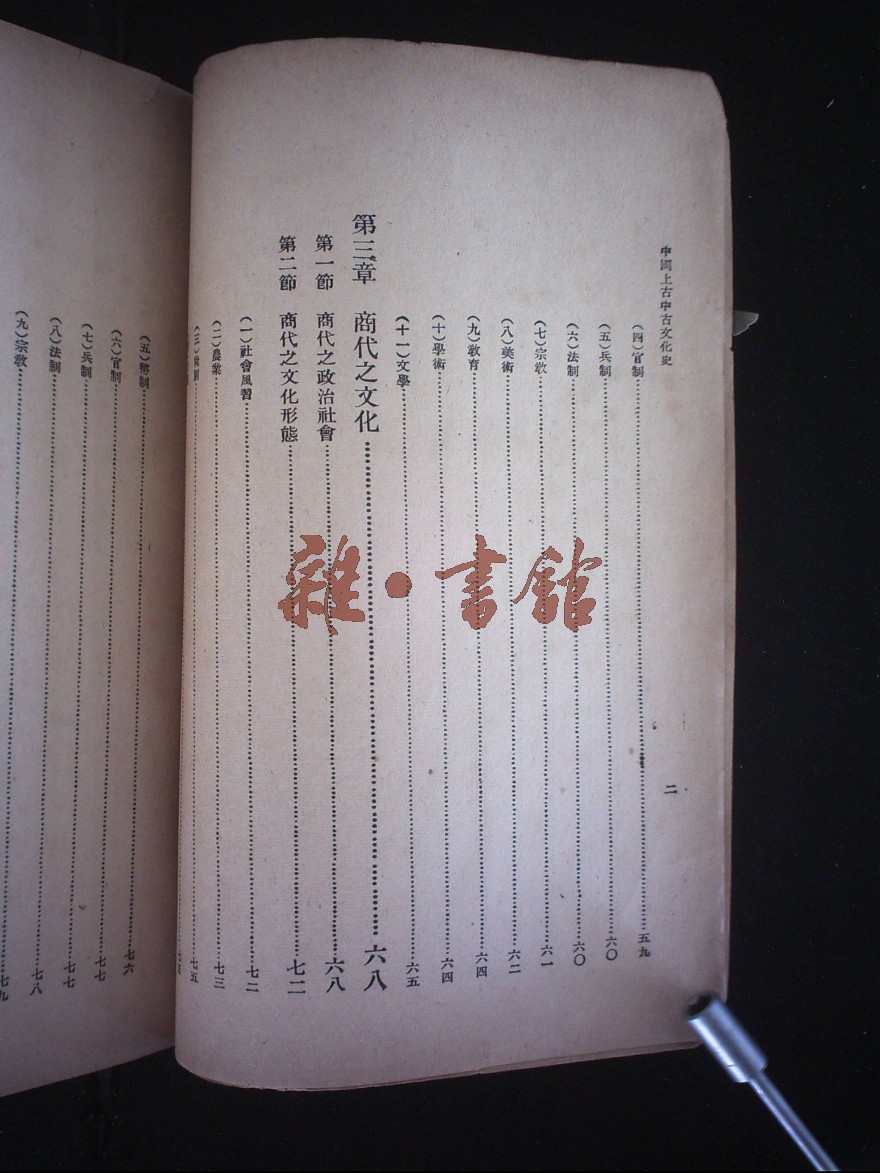 中國上古中古文化史
二
(四)官制……五九
(五)兵制……六〇
(六)法制……六〇
(七)宗教……六一
(八)美術……六二
(九)教育……六四
(十)學術……六四
(十一)文學……六五
第三章 商代之文化……六八
第一節 商代之政治社會……六八
第二節 商代之文化形態……七二
(一)社會風習……七二
(二)農業……七三
(三)稅制……七五
(五)幣制……七六
(六)官制……七七
(七)兵制……七七
(八)法制……七八
(九)宗教……七九
雜·書館